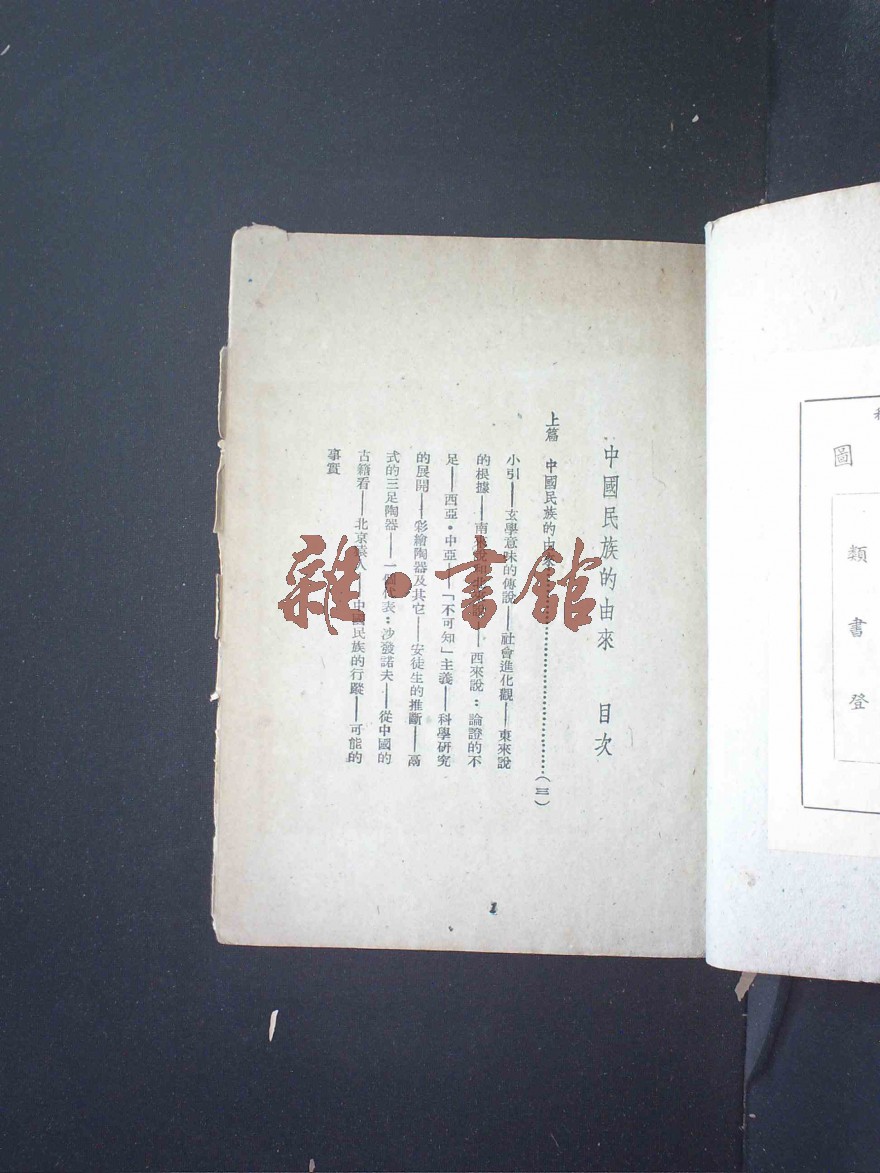 中國民族的由來　目次
上篇　中國民族的由來……………………………（三）
小引——玄學意味的傳說——社會進化觀——東來說
的根據——南來說和北來說——西來說：論證的不
足——西亞·中亞——「不可知」主義——科學研究
的展開——彩繪陶器及其它——安徒生的推斷——鬲
式的三足陶器——一個代表：沙發諾夫——從中國的
古籍看——北京猿人——中國民族的行蹤——可能的
事實
1
雜·書館
圖
類書登